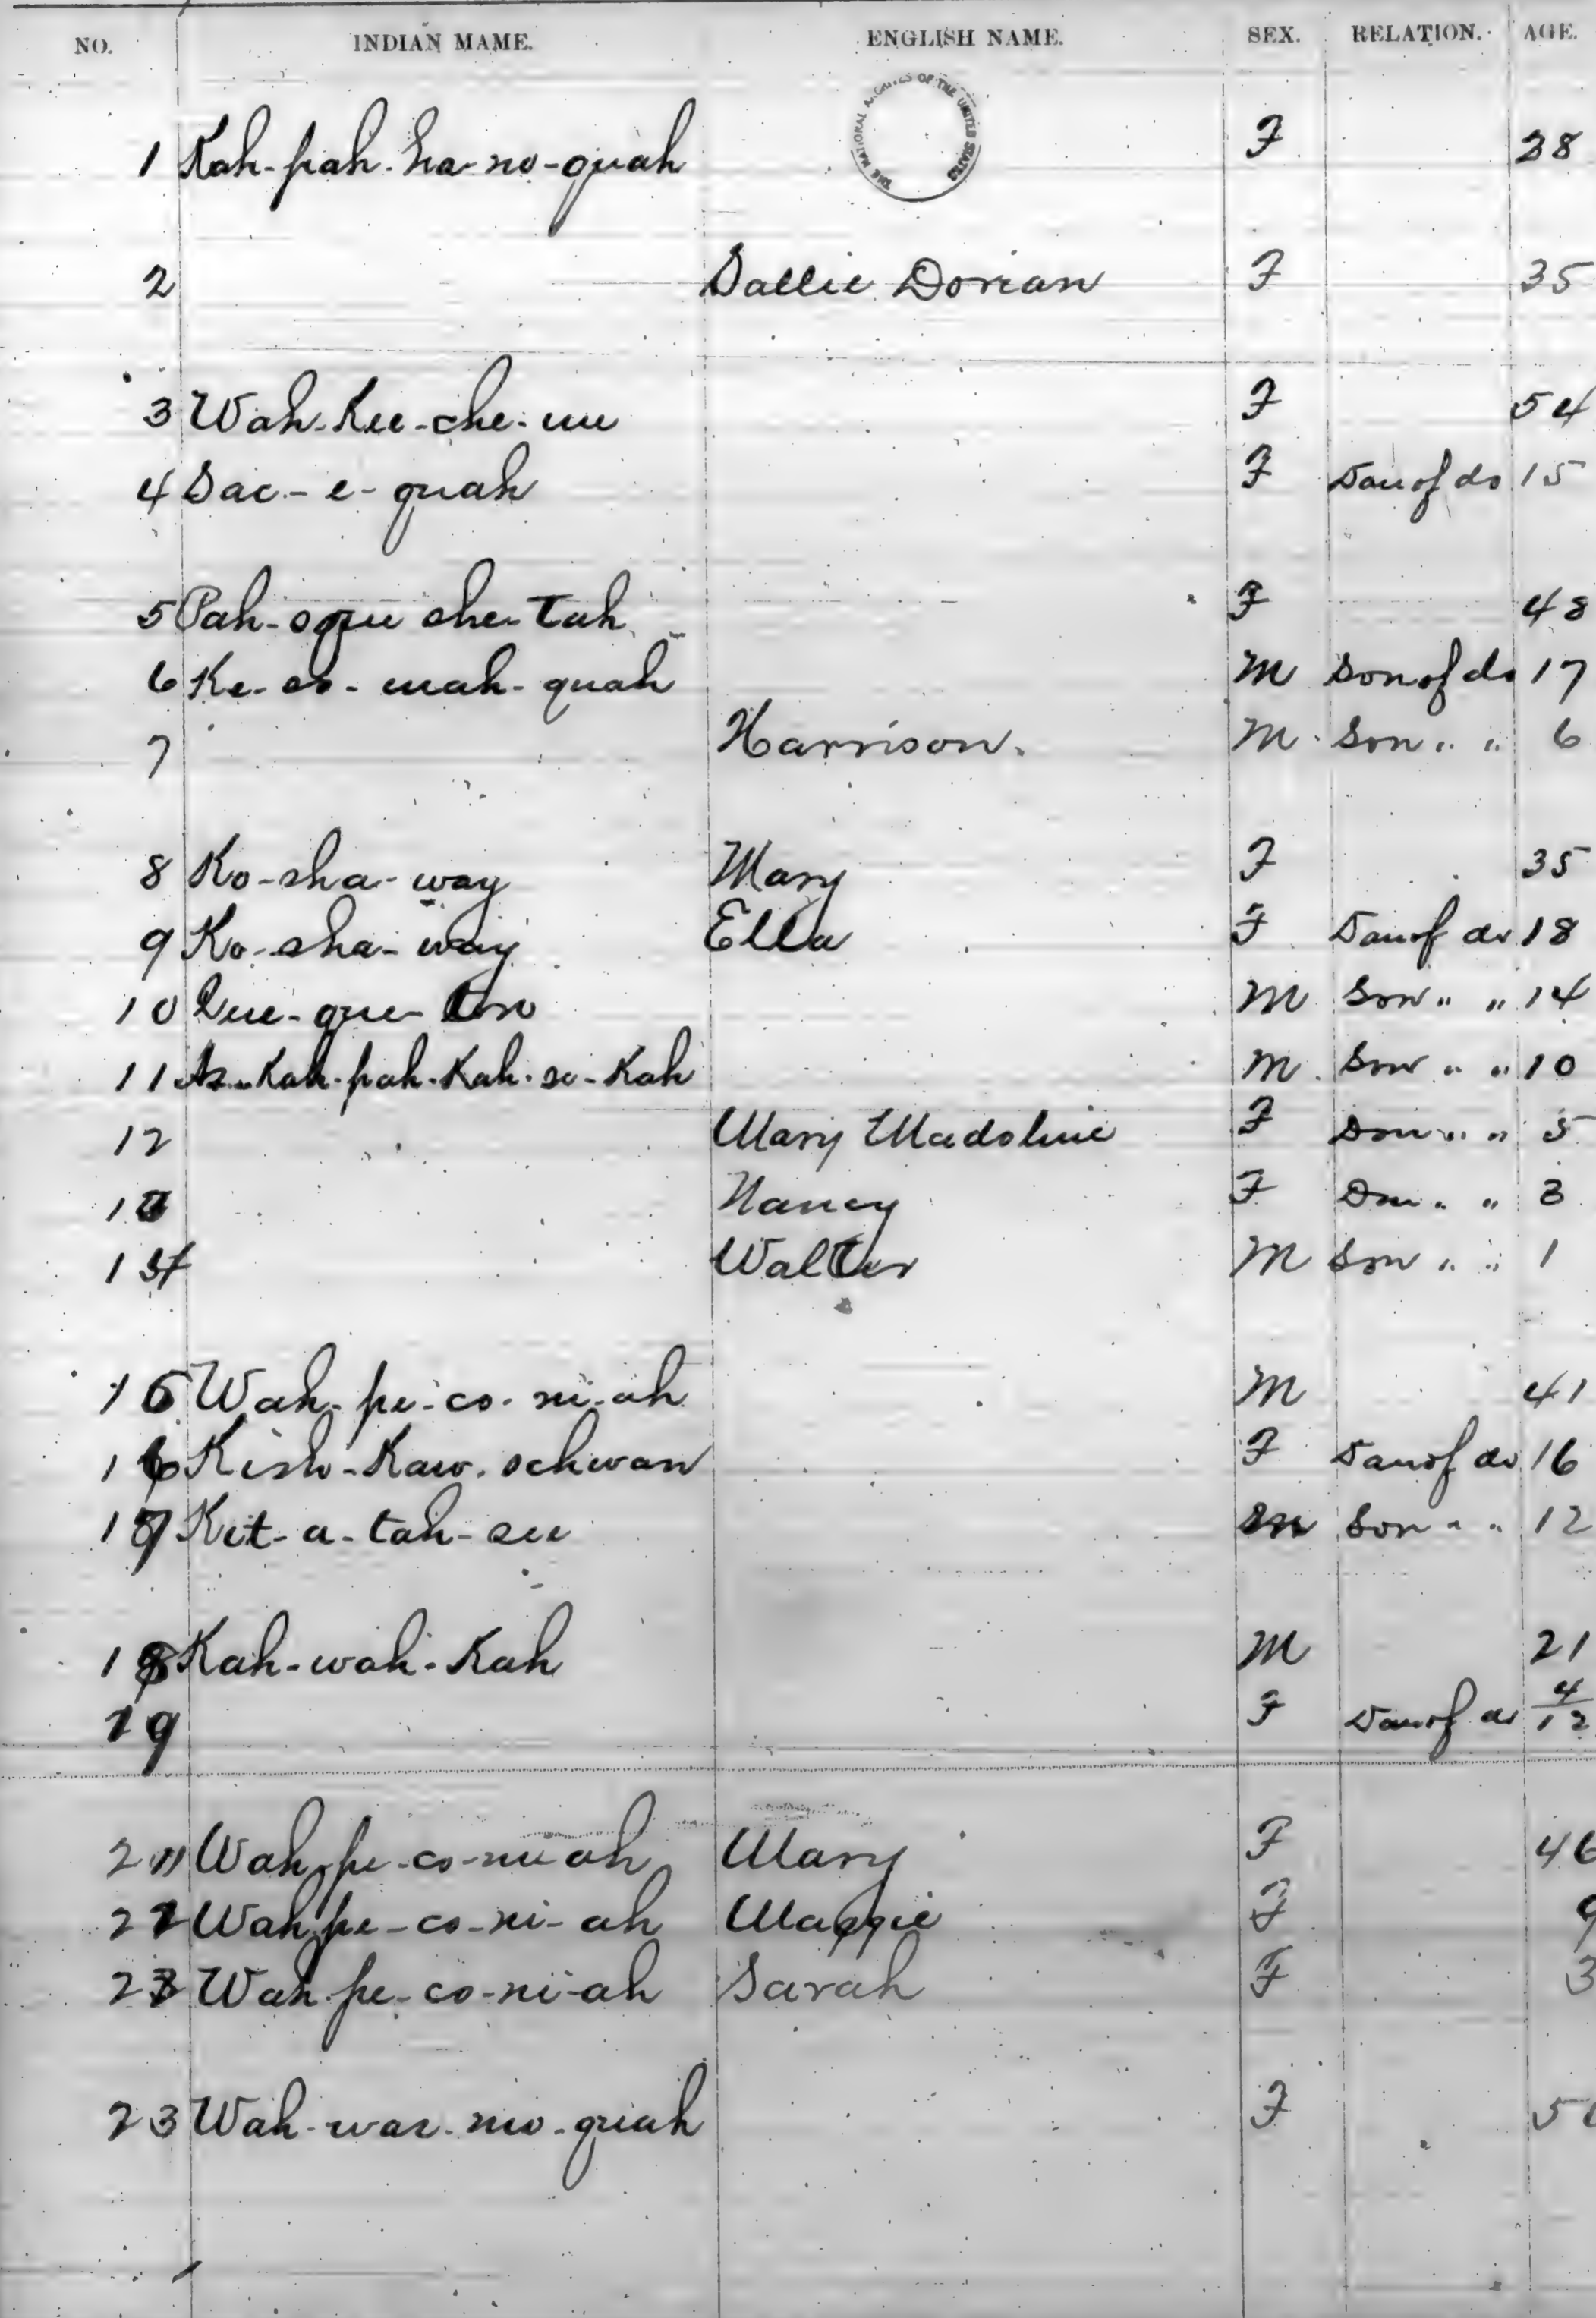 NO. INDIAN MAME. ENGLISH NAME. SEX. RELATION. AGE.
THE NATIONAL ARCHIVES OF THE UNITED STATES
1 Kah-pah-ha-no-quah F 38
2 Sallie Dorian F 35
3 Wah-Kee-che-me F 54
4 Sac-e-quah F Dau of do 15
5 Pah-sque che-tah F 48
6 Ke-os-mah-quah M Son of do 17
7 Harrison. M Son " " 6
8 Ko-sha-way Mary F 35
9 Ko-sha-way Ella F Dau of do 18
10 Que-que-ton M Son " " 14
11 Az-Kah-pah-Kah-so-Kah M Son " " 10
12 Mary Madoline F Dau " " 5
13 Nancy F Dau " " 3
14 Walter M Son " " 1
15 Wah-pe-co-ni-ah M 41
16 Kish-Kaw-schwan F Dau of do 16
17 Ket-a-tah-see M Son " " 12
18 Kah-wah-Kah M 21
19 F Dau of do 4/12
20 Wah-pe-co-ni-ah Mary F 46
21 Wah-pe-co-ni-ah Maggie F 9
22 Wah-pe-co-ni-ah Sarah F 3
23 Wah-war-mo-quah F